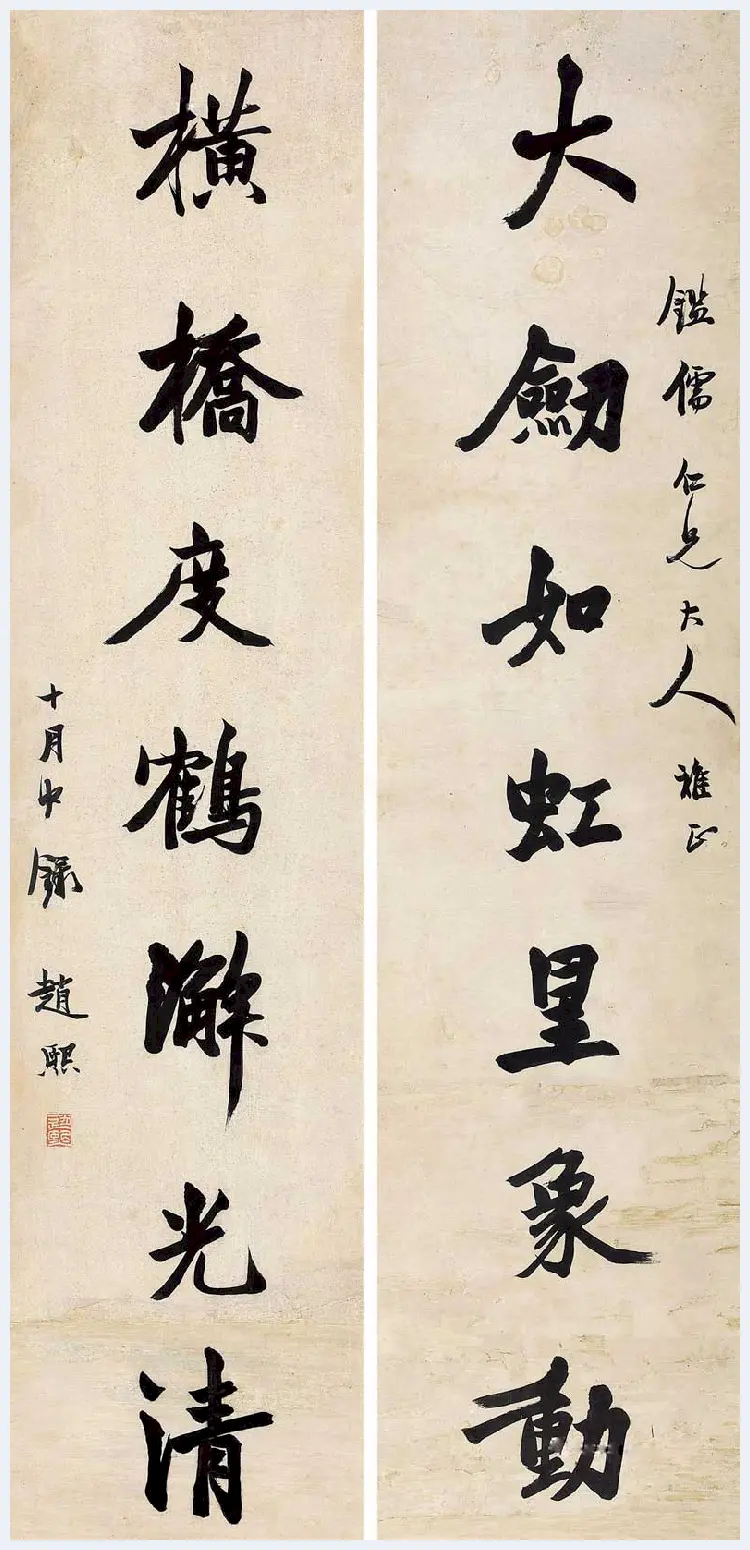 鑑儒仁兄大人雅正
大劒如虹星象動
橫橋度鶴澥光清
十月中録 趙熙